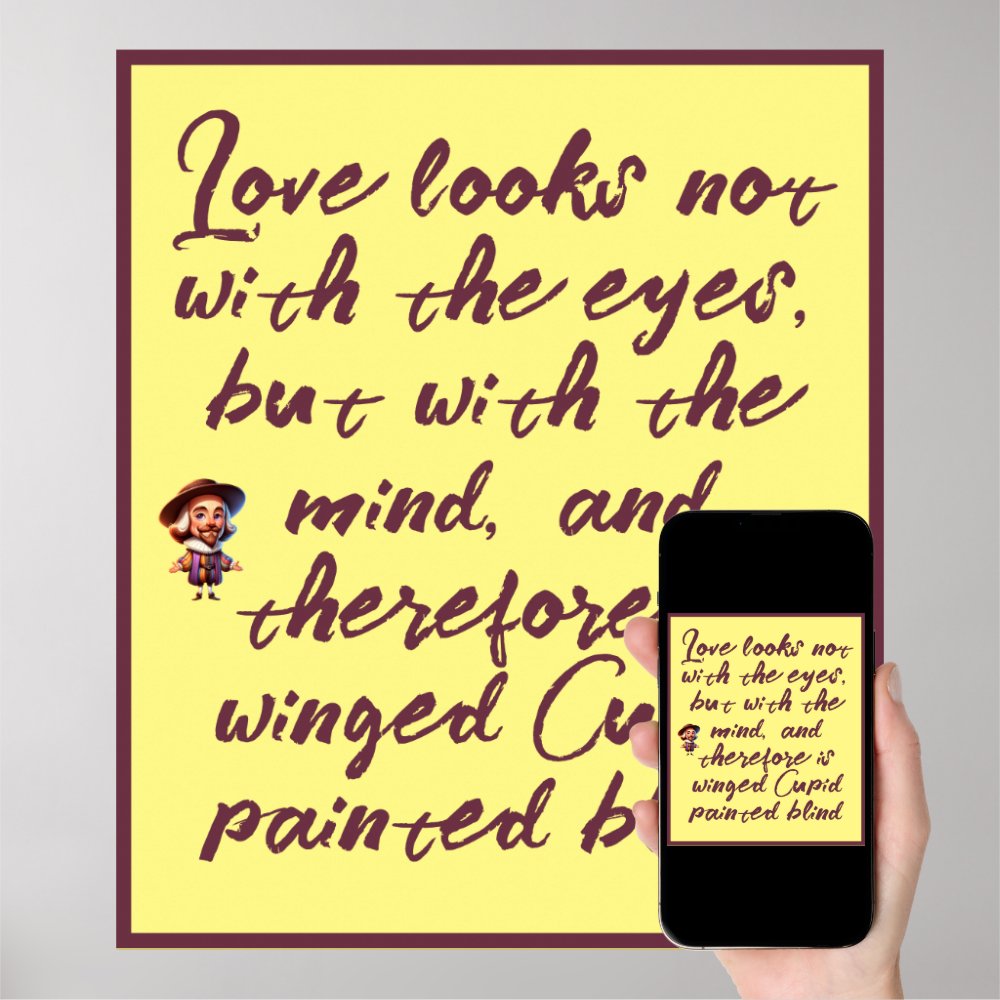 Love looks not
with the eyes,
but with the
mind, and
therefore
winged Cu
painted b
Love looks not
with the eyes,
but with the
mind, and
therefore is
winged Cupid
painted blind